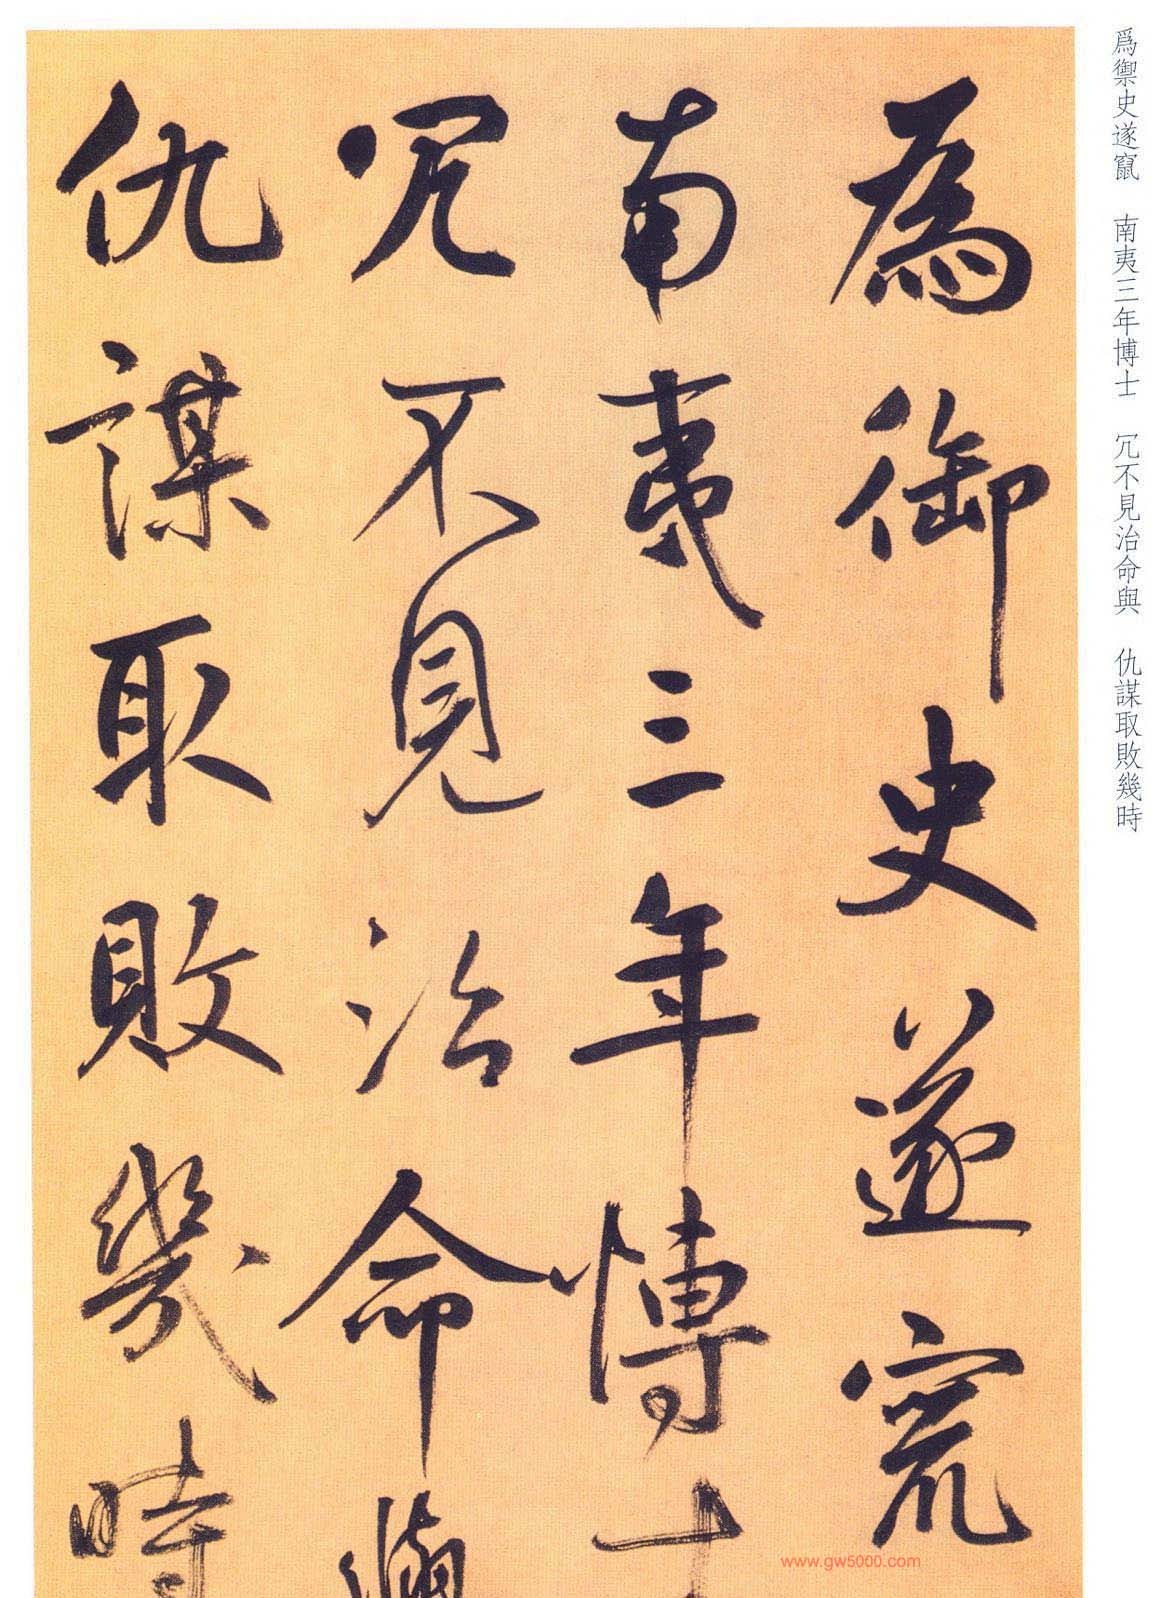 爲禦史遂竄 南夷三年博士 冗不見治命與 仇謀取敗幾時
為御史遂竄
南夷三年博士
冗不見治命與
仇謀取敗幾時
www.gw5000.com